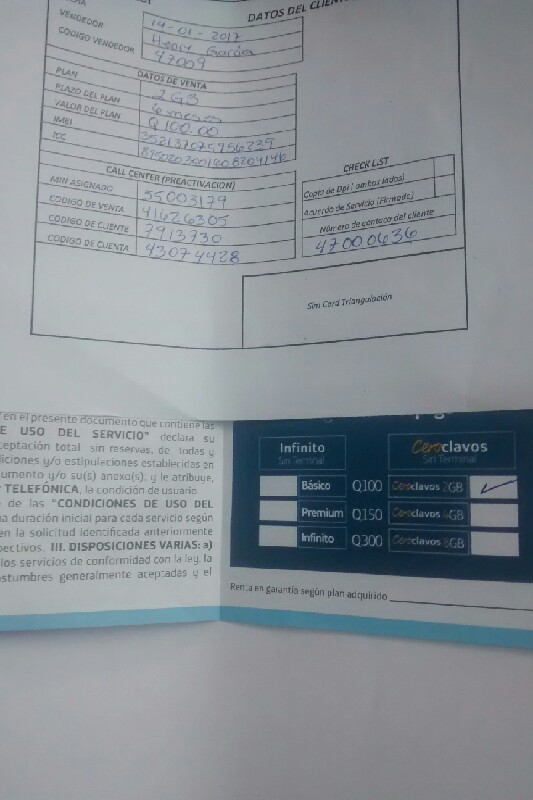 DATOS DEL CLIEN
14-01-2017
VENDEDOR Henry Garcia
CODIGO VENDEDOR 47009
DATOS DE VENTA
PLAN 2GB
PLAZO DEL PLAN 6 meses
VALOR DEL PLAN Q100.00
IMEI
ICC
CALL CENTER (PREACTIVACION)
MIN ASIGNADO 55003179
CODIGO DE VENTA 41626305
CODIGO DE CLIENTE 7913730
CODIGO DE CUENTA 43074428
CHECK LIST
Copia de Dpi (ambos lados)
Acuerdo de Servicio (Firmado)
Número de contaco del cliente
47000636
Sim Card Triangulación
en el presente documento que contiene las
E USO DEL SERVICIO" declara su
ceptación total sin reservas, de todas y
diciones y/o estipulaciones establecidas en
cumento y/o su(s) anexo(s), y le atribuye,
TELEFÓNICA, la condición de usuario
de las "CONDICIONES DE USO DEL
na duración inicial para cada servicio según
en la solicitud identificada anteriormente
pectivos. III. DISPOSICIONES VARIAS: a)
los servicios de conformidad con la ley, la
ostumbres generalmente aceptadas y el
Infinito
Sin Terminal
Ceroclavos
Sin Terminal
Básico Q100 Ceroclavos 2GB
Premium Q150 Ceroclavos GB
Infinito Q300 Ceroclavos GB
Renta en garantía según plan adquirido